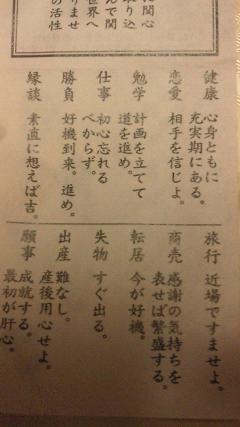 に関心
取り込
んで関
世界へ
りませ
の活性
健康 心身ともに
充実期にある。
恋愛 相手を信じよ。
勉学 計画を立てて
道を進め。
仕事 初心忘れる
べからず。
勝負 好機到来。進め。
縁談 素直に想えば吉。
旅行 近場ですませよ。
商売 感謝の気持ちを
表せば繁盛する。
転居 今が好機。
失物 すぐ出る。
出産 難なし。
産後用心せよ。
願事 成就する。
最初が肝心。